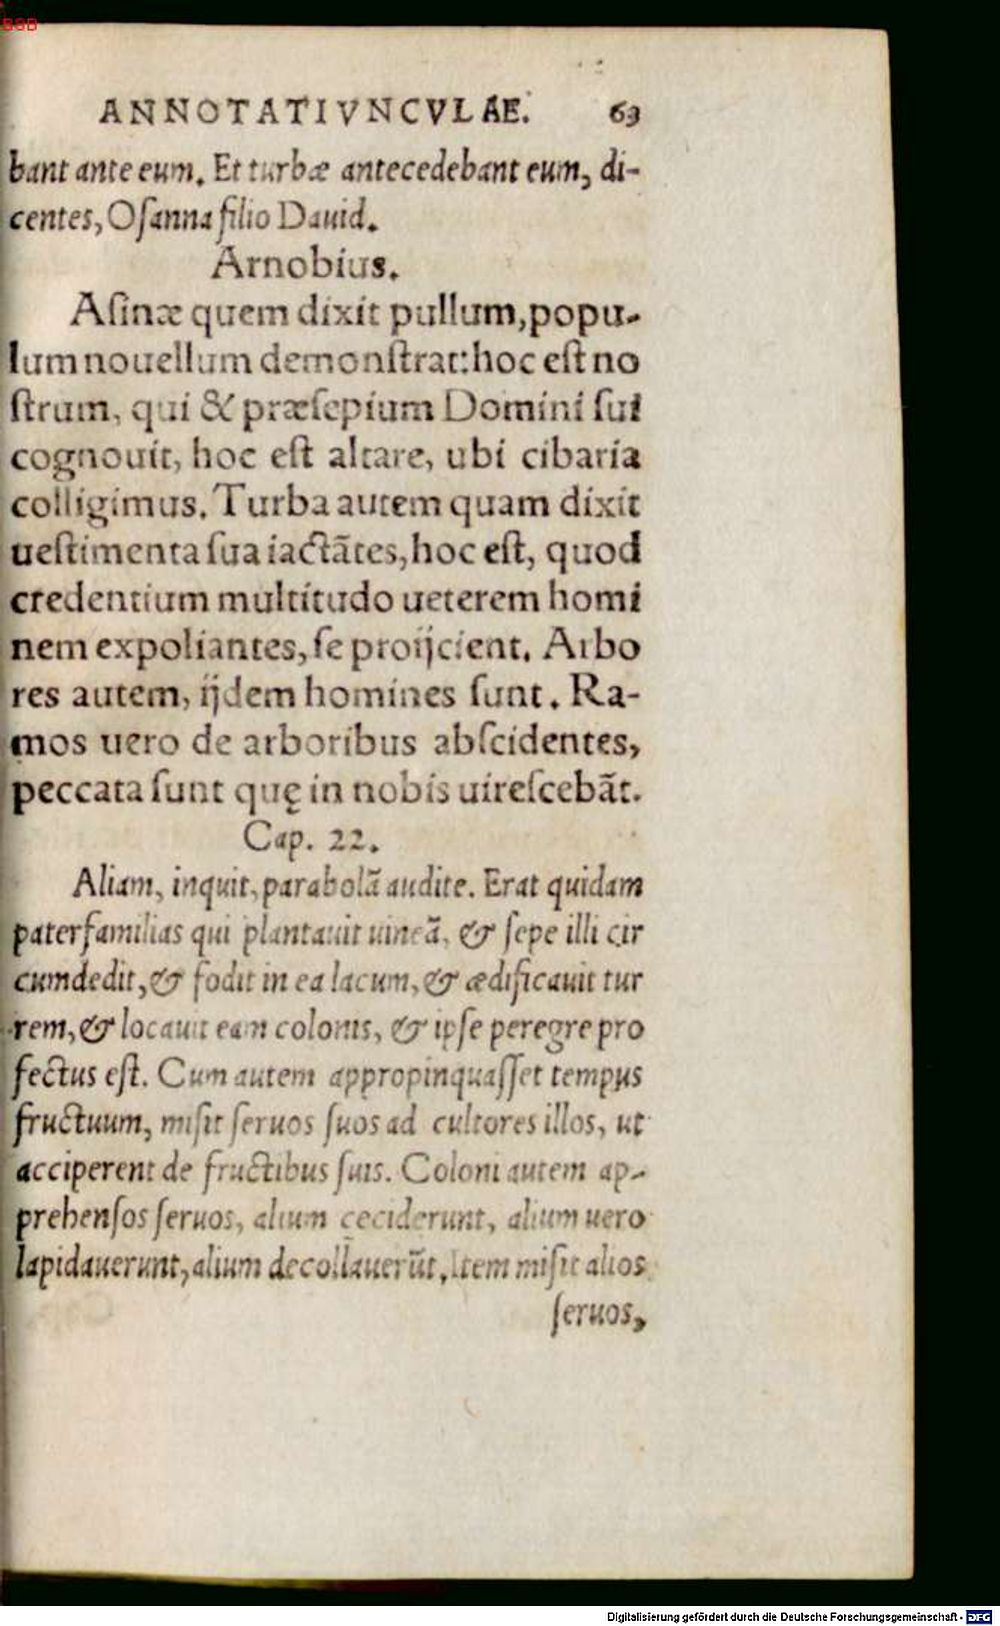 BSB
ANNOTATIVNCVLAE. 63
bant ante eum. Et turbæ antecedebant eum, di-
centes, Oſanna filio Dauid.
Arnobius.
Aſinæ quem dixit pullum, popu-
lum nouellum demonſtrat: hoc eſt no
ſtrum, qui & præſepium Domini ſui
cognouit, hoc eſt altare, ubi cibaria
colligimus. Turba autem quam dixit
ueſtimenta ſua iactātes, hoc eſt, quod
credentium multitudo ueterem homi
nem expoliantes, ſe proijcient. Arbo
res autem, ijdem homines ſunt. Ra-
mos uero de arboribus abſcidentes,
peccata ſunt quę in nobis uireſcebāt.
Cap. 22.
Aliam, inquit, parabolā audite. Erat quidam
paterfamilias qui plantauit uineā, & ſepe illi cir
cumdedit, & fodit in ea lacum, & ædificauit tur
rem, & locauit eam colonis, & ipſe peregre pro
fectus eſt. Cum autem appropinquaſſet tempus
fructuum, miſit ſeruos ſuos ad cultores illos, ut
acciperent de fructibus ſuis. Coloni autem ap-
prehenſos ſeruos, alium ceciderunt, alium uero
lapidauerunt, alium decollauerūt. Item miſit alios
ſeruos,
Digitalisierung gefördert durch die Deutsche Forschungsgemeinschaft - DFG